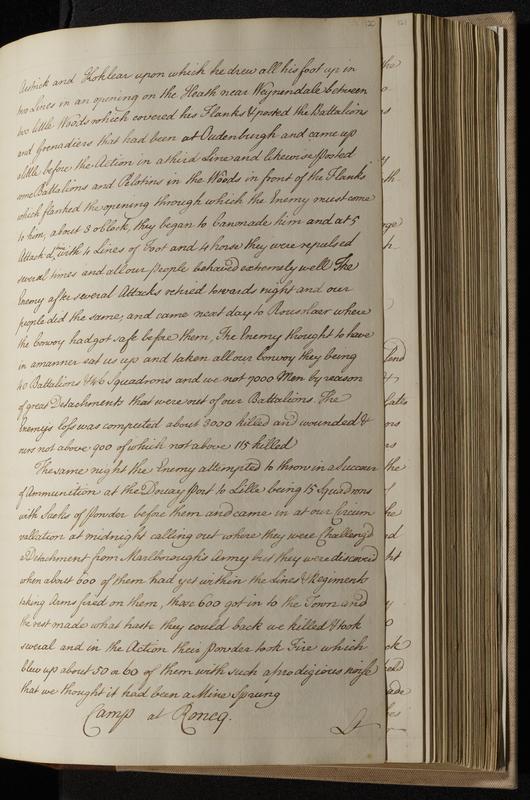 and Hoklear upon which he drew all his foot up in
two Lines in an opening on the Heath near Weynendale between
two little Woods which covered his Flanks & posted the Battalions
and Grenadiers that had been at Oudenburgh and came up
a little before the Action in a third Line and likewise posted
some Battalions and Platons in the Woods in front of the Flanks
which flanked the opening through which the Enemy must come
to him, about 3 oClock, they began to Canonade him and at 5
Attack'd, with 4 Lines of foot and 4 horse they were repulsed
several times and all our people behaved extremely well The
Enemy after several Attacks retired towards night and our
people did the same, and came next day to Rouslaer where
the Convoy had got safe before them, The Enemy thought to have
in a manner eat us up and taken all our Convoy they being
40 Battalions & 46 Squadrons and we not 7000 Men by reason
of great Detachments that were out of our Battalions. The
Enemys loss was computed about 3000 killed and wounded &
ours not above 900 of which not above 115 killed
The same night the Enemy attempted to throw in a Succour
of Ammunition at the Douay Port to Lille being 15 Squadrons
with Sacks of Powder before them and came in at our Circum
vallation at midnight calling out where they were Challeng'd
a Detachment from Marlborough's Army but they were discovered
when about 600 of them had got within the Lines & Regiments
taking Arms fired on them, these 600 got in to the Town and
the rest made what haste they could back we killed & took
several and in the Action their Powder took Fire which
blew up about 50 or 60 of them with such a prodigious noise
that we thought it had been a Mine Sprung
Camp at Roncq.